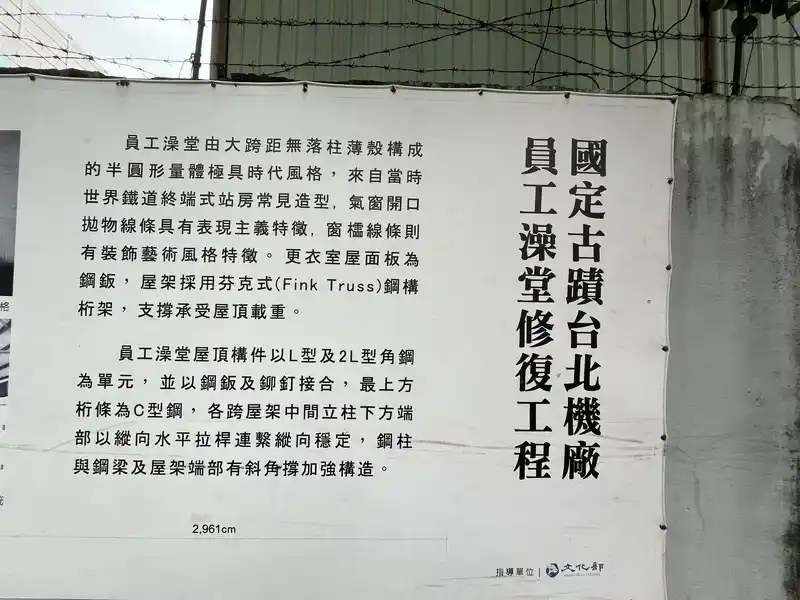 國定古蹟台北機廠
員工澡堂修復工程
員工澡堂由大跨距無落柱薄殼構成
的半圓形量體極具時代風格，來自當時
世界鐵道終端式站房常見造型, 氣窗開口
拋物線條具有表現主義特徵, 窗櫺線條則
有裝飾藝術風格特徵。更衣室屋面板為
鋼鈑，屋架採用芬克式(Fink Truss)鋼構
桁架，支撐承受屋頂載重。
員工澡堂屋頂構件以L型及2L型角鋼
為單元，並以鋼鈑及鉚釘接合，最上方
桁條為C型鋼，各跨屋架中間立柱下方端
部以縱向水平拉桿連繫縱向穩定，鋼柱
與鋼梁及屋架端部有斜角撐加強構造。
2,961cm
格
指導單位 | 文化部